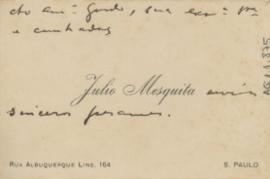 cto am.º Gordo, sua exm.ª
e cunhadas
Julio Mesquita envia
sinceros pesames.
RUA ALBUQUERQUE LINS, 164 S. PAULO